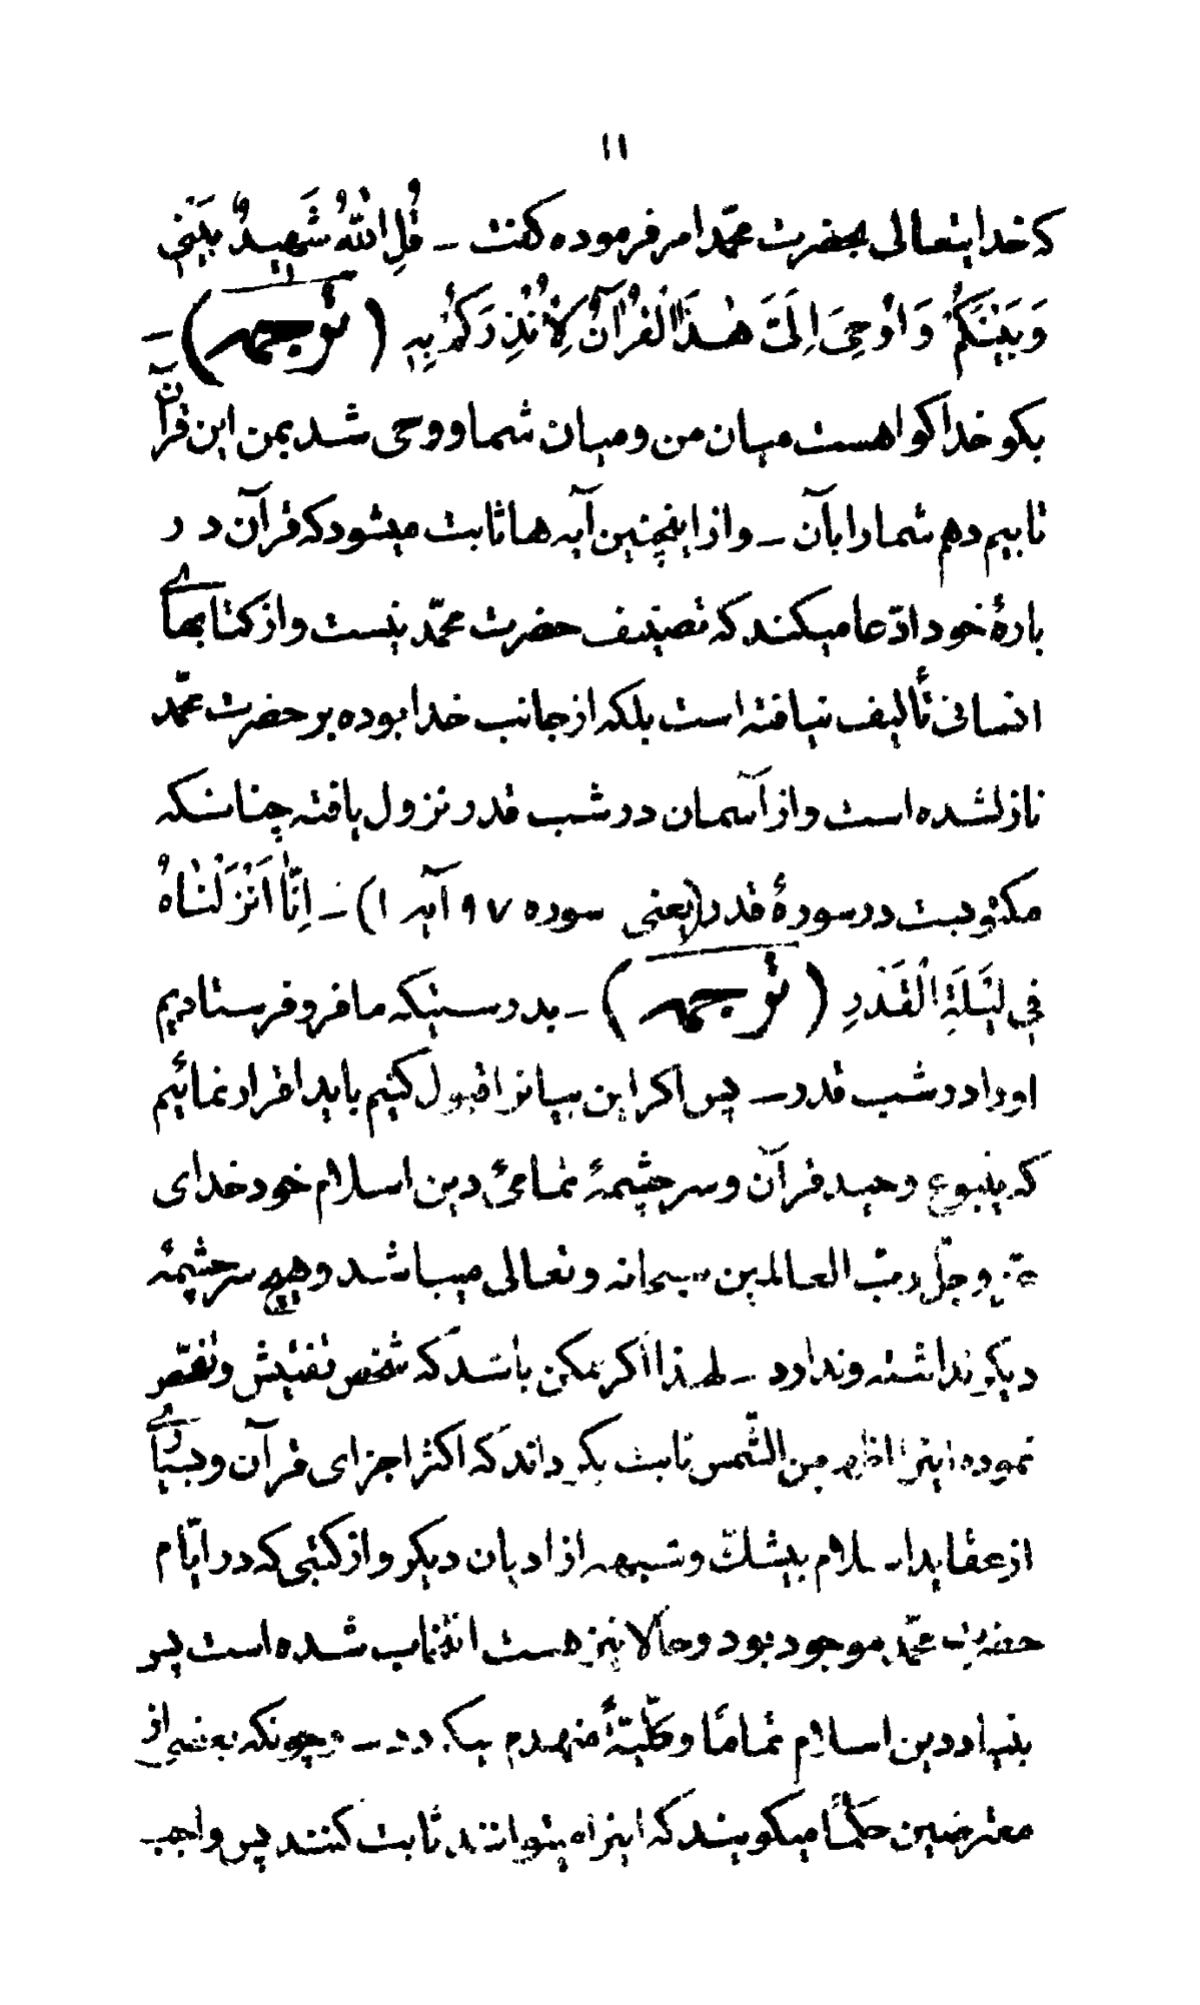 ۱۱
که خدایتعالی بحضرت محمّد امر فرموده کفت ــ قُلِ اللّٰهُ شَهِیدٌ بَیْنِی
وَبَیْنَکُمْ وَاُوحِیَ اِلَیَّ هٰذَا الْقُرْآنُ لِاُنْذِرَکُمْ بِهِ (ترجمه) ــ
بکو خدا کواهست میان من و میان شما و وحی شد بمن این قرآن
تا بیم دهم شما را بآن ــ و از اینچنین آیه ها ثابت میشود که قرآن در
بارهٔ خود ادّعا میکند که تصنیف حضرت محمّد نیست و از کتابهای
انسانی تألیف نیافته است بلکه از جانب خدا بوده بر حضرت محمّد
نازلشده است و از آسمان در شب قدر نزول یافته چنانکه
مکتوبست در سورهٔ قدر (یعنی سوره ۹۷ آیه ۱) ــ اِنَّا اَنْزَلْنَاهُ
فِی لَیْلَةِ الْقَدْرِ (ترجمه) ــ بدرستیکه ما فرو فرستادیم
اورا در شب قدر ــ پس اکر این بیانرا قبول کنیم باید اقرار نمائیم
که ینبوع وحید قرآن و سر چشمهٔ تمامئ دین اسلام خود خدای
عزّ و جلّ ربّ العالمین سبحانه و تعالی میباشد و هیچ سرچشمهٔ
دیکر نداشته و ندارد ــ لهذا اکر ممکن باشد که شخص تفتیش و تفحّص
نموده اینرا اظهر من الشّمس ثابت بکرداند که اکثر اجزای قرآن و بسیاری
از عقاید اسلام بیشكّ و شبهه از ادیان دیکر و از کتبی که در ایّام
حضرت محمّد موجود بود و حالا نیز هست انتخاب شده است پس
بنیاد دین اسلام تماماً و کلّیّةً منهدم میکردد ــ و چونکه بعضی از
معترضین حکماً میکویند که اینرا میتوانند ثابت کنند پس واجب